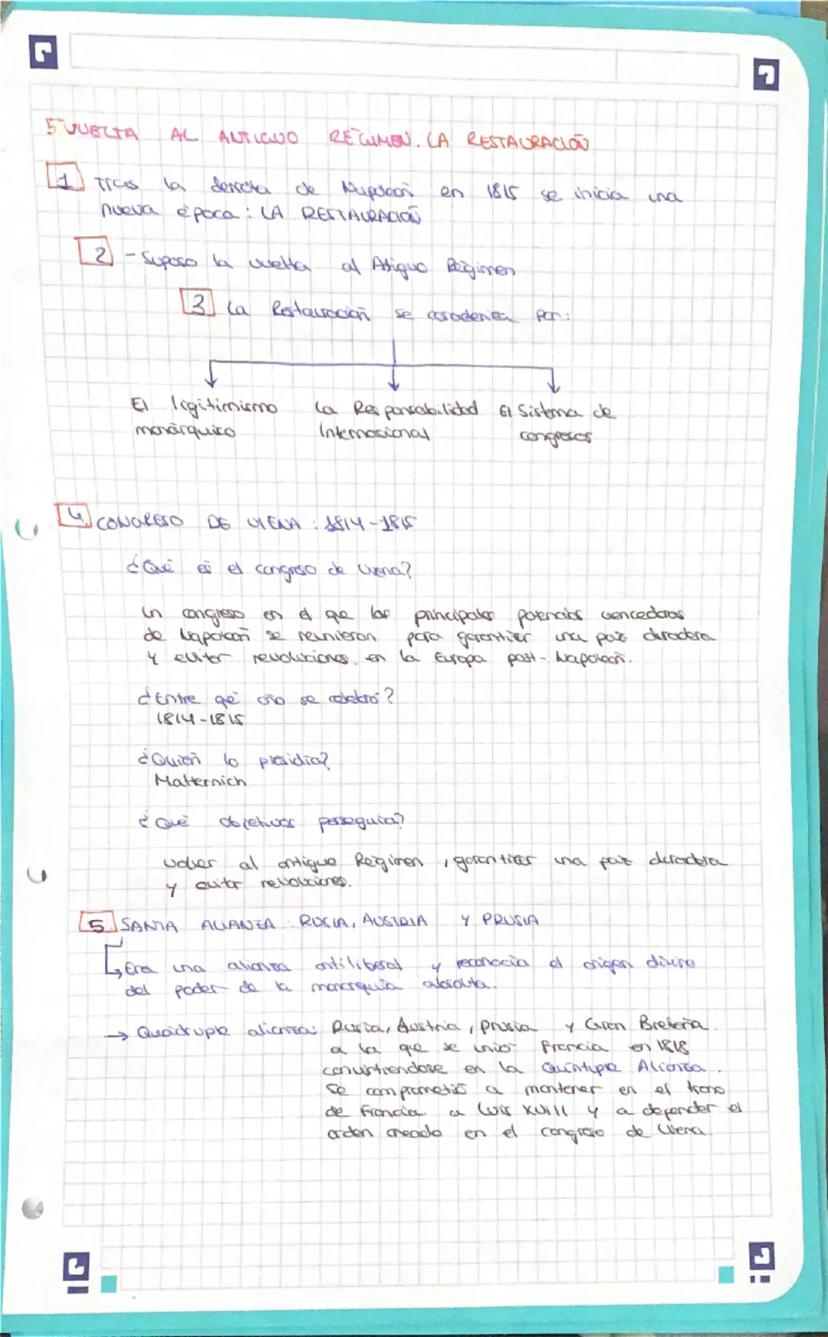 5 VUELTA AL ANTIGUO RÉGIMEN. LA RESTAURACIÓN
1 Tras la derrota de Napoleón en 1815 se inicia una
nueva época: LA RESTAURACIÓN
2 - Supuso la vuelta al Atiguo Régimen
3 La Restauración se caracteriza por:
El legitimismo La Responsabilidad El Sistema de
monárquico Internacional congresos
4 CONGRESO DE VIENA: 1814-1815
¿Qué es el congreso de Viena?
Un congreso en el que las principales potencias vencedoras
de Napoleón se reunieron para garantizar una paz duradera
y evitar revoluciones en la Europa post-Napoleón.
¿Entre qué año se celebró?
1814-1815
¿Quién lo presidia?
Maternich
¿Qué objetivos perseguia?
Volver al antiguo Régimen, garantizar una paz duradera
y evitar revoluciones.
5 SANTA ALIANZA: RUSIA, AUSTRIA Y PRUSIA
Era una alianza antiliberal y reconocia el origen divino
del poder de la monarquía absoluta.
→ Quádruple alianza: Rusia, Austria, Prusia y Gran Bretaña.
a la que se unió Francia en 1818
convirtiendose en la Quíntuple Alianza.
Se comprometió a mantener en el trono
de Francia a Luis XVIII y a defender el
orden creado en el congreso de Viena.